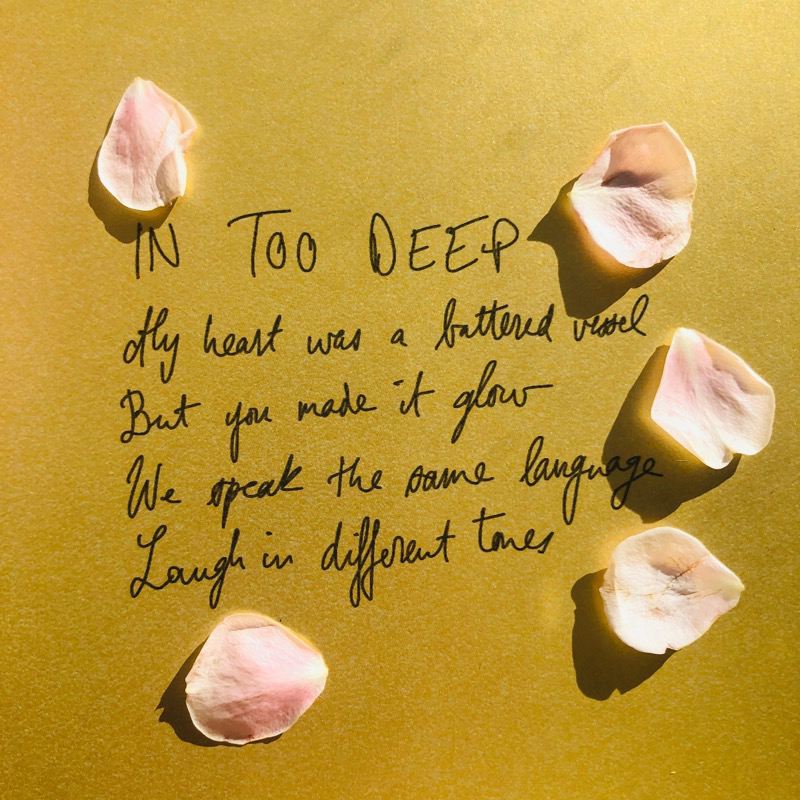 IN TOO DEEP
My heart was a battered vessel
But you made it glow
We speak the same language
Laugh in different tones